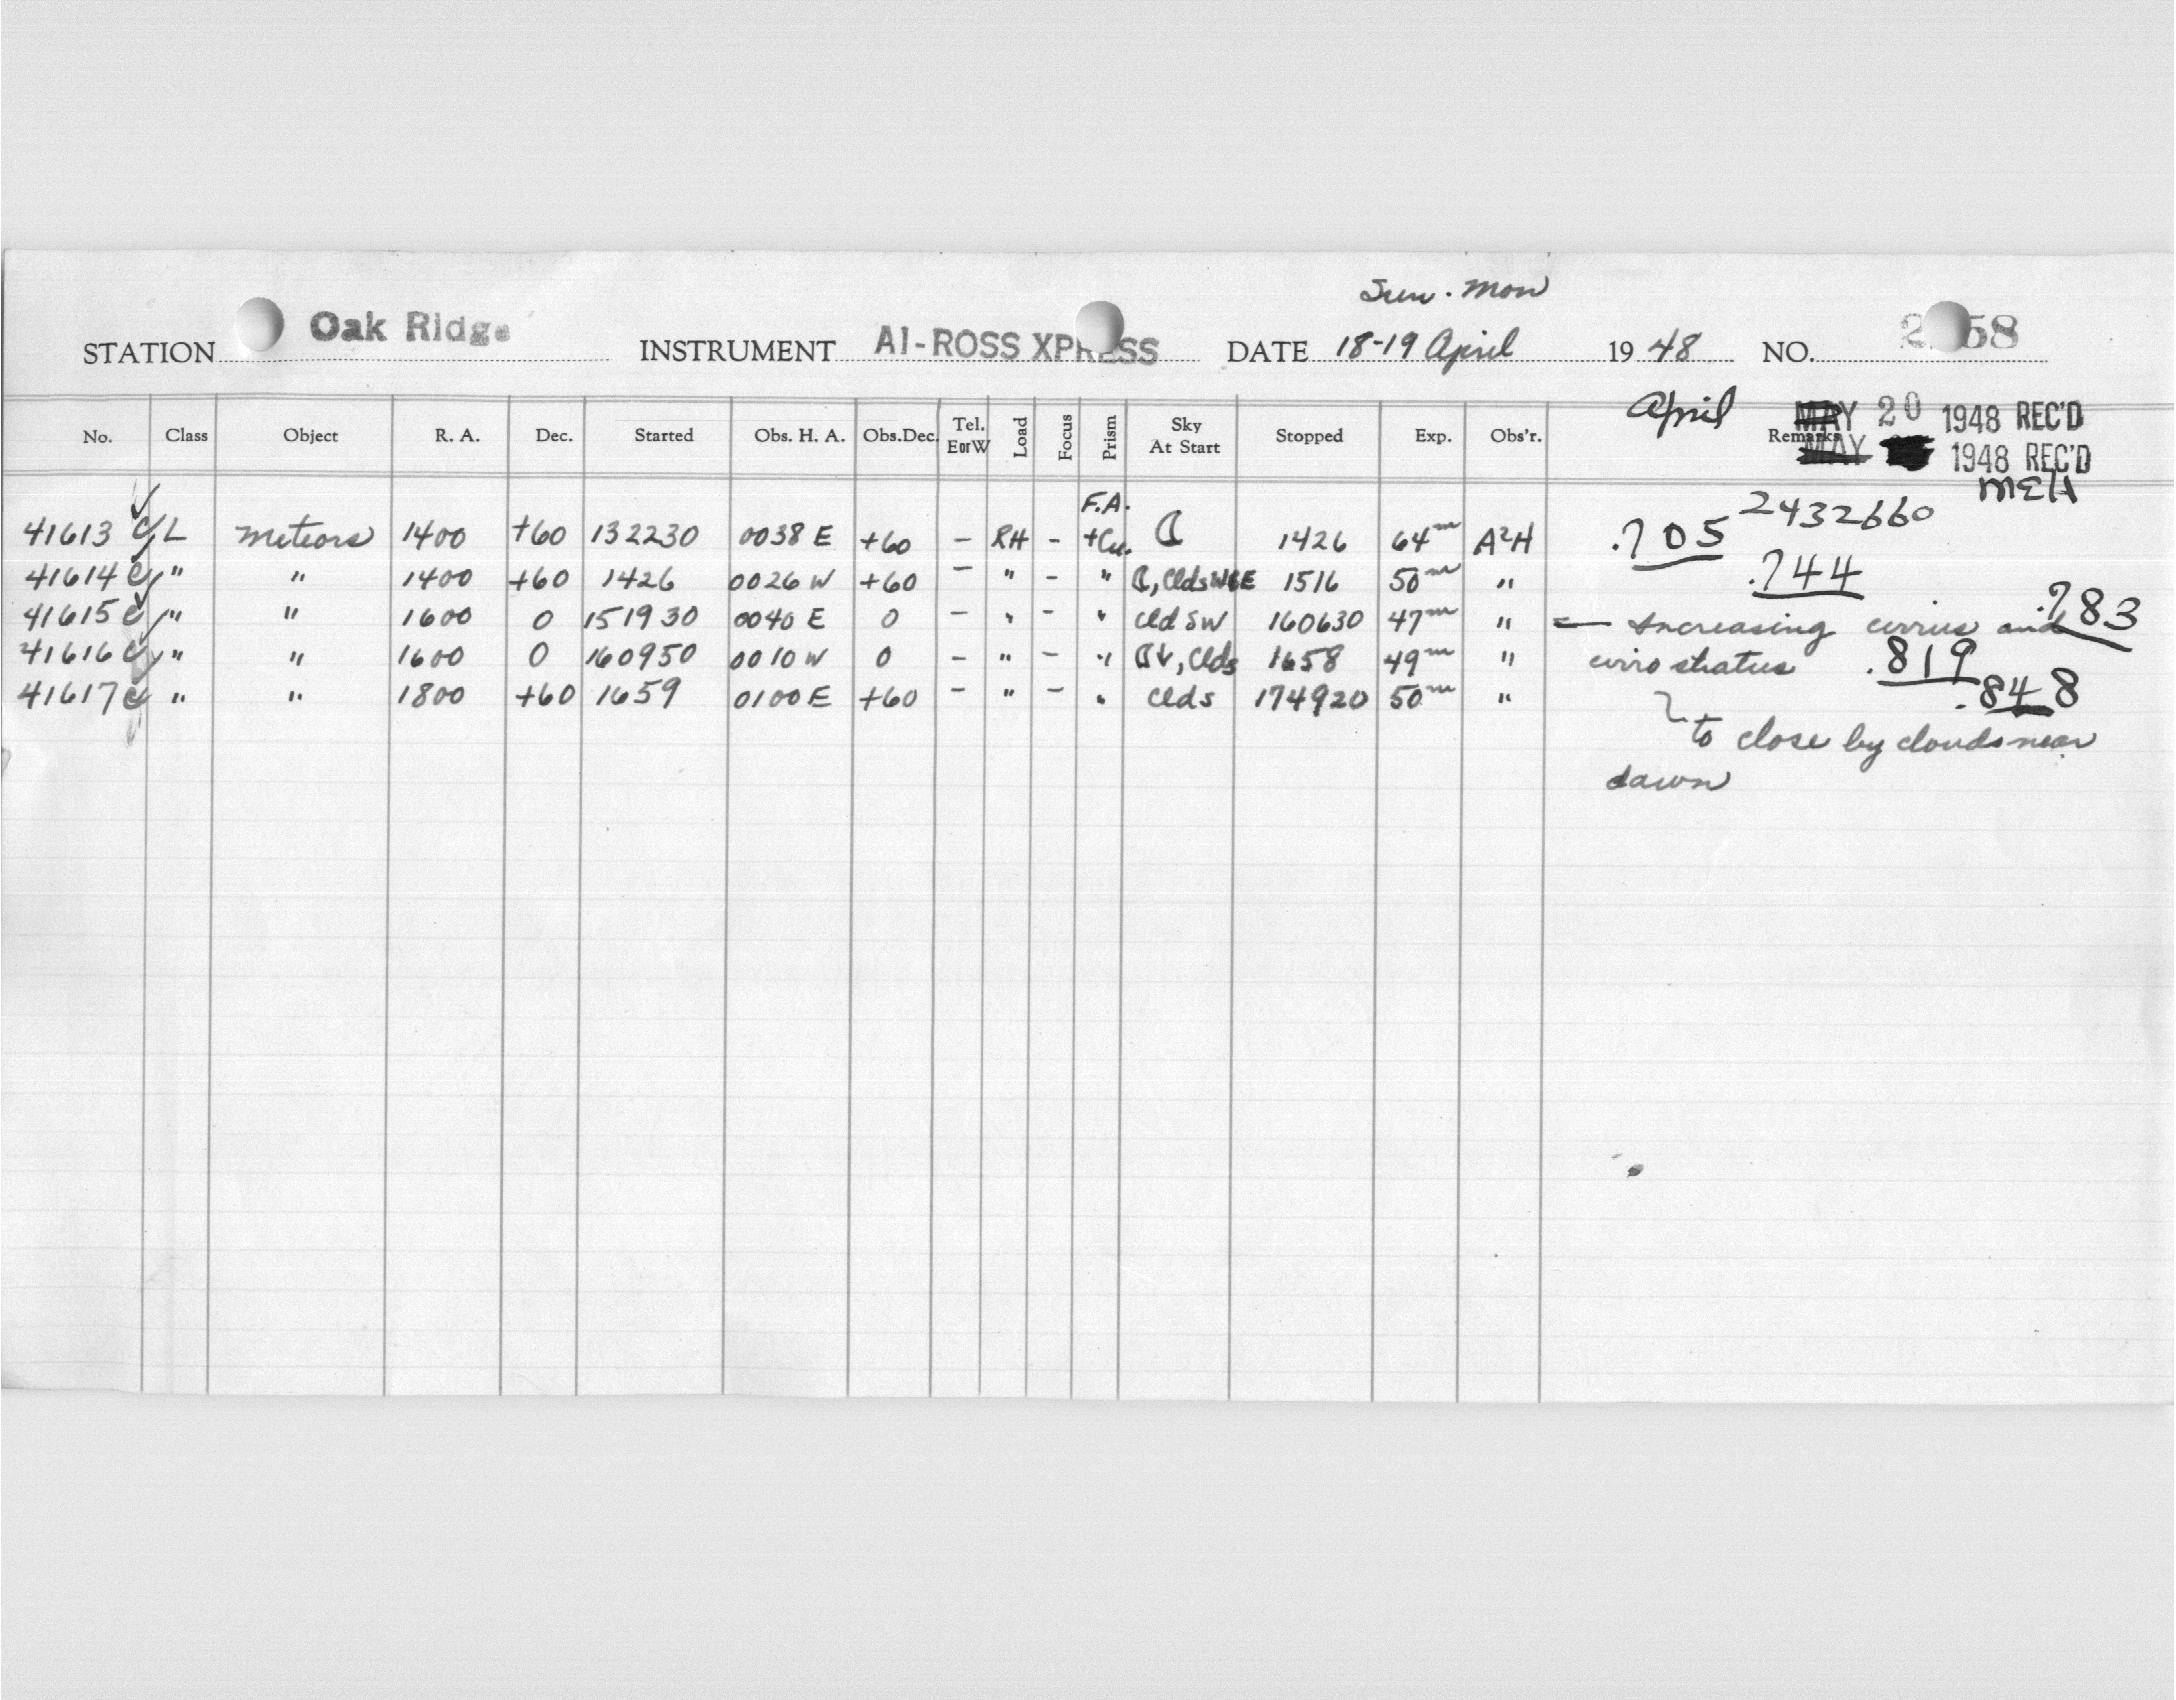 Sun. Mon
STATION Oak Ridge INSTRUMENT AI-ROSS XPRESS DATE 18-19 April 1948 NO. 58
April MAY 20 1948 REC'D
No. Class Object R. A. Dec. Started Obs. H. A. Obs.Dec. Tel. E or W Load Focus Prism Sky At Start Stopped Exp. Obs'r. Remarks
MAY 1948 REC'D
MEH
41613 C L Meteors 1400 +60 132230 0038 E +60 - RH - F.A. +Cu. ☾ 1426 64m A2H .705 2432660
41614 C " " 1400 +60 1426 0026 W +60 - " - " ☾, Clds W&E 1516 50m " .744
41615 C " " 1600 0 151930 0040 E 0 - " - " cld SW 160630 47m " — Increasing cirrus and .783
41616 C " " 1600 0 160950 0010 W 0 - " - " ☾↓, Clds 1658 49m " cirro stratus .819
41617 C " " 1800 +60 1659 0100 E +60 - " - " clds 174920 50m " .848
to close by clouds near
dawn